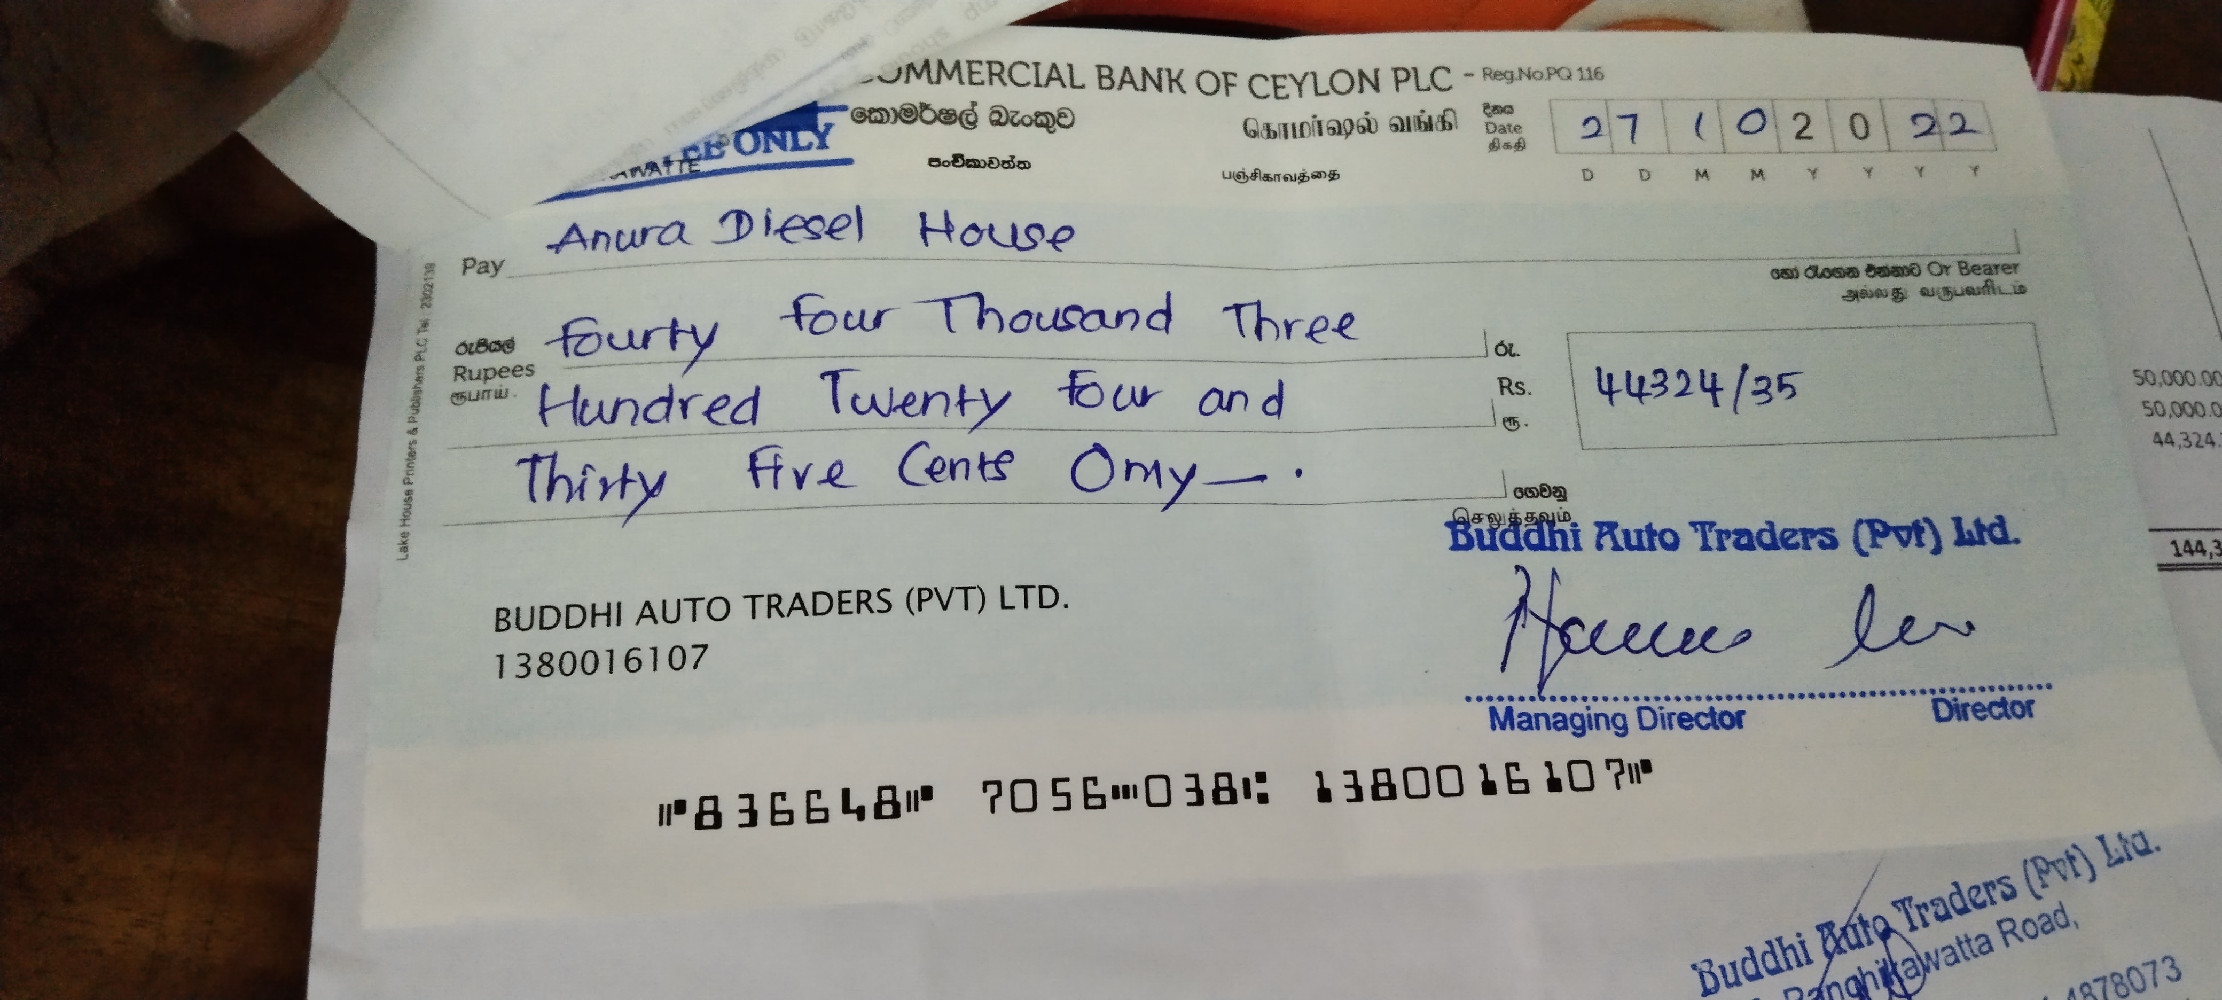 COMMERCIAL BANK OF CEYLON PLC - Reg.No.PQ 116
කොමර්ෂල් බැංකුව
கொமர்ஷல் வங்கி
දිනය
Date
திகதி
27 10 2022
D D M M Y Y Y Y
ONLY
පංචිකාවත්ත
பஞ்சிகாவத்தை
Pay Anura Diesel House
හෝ රැගෙන එන්නාට Or Bearer
அல்லது வருபவரிடம்
රුපියල්
Rupees
ரூபாய்
Fourty Four Thousand Three
Hundred Twenty Four and
Thirty Five Cents Only —.
රු.
Rs.
ரூ.
44324/35
ගෙවනු
செலுத்தவும்
Lake House Printers & Publishers PLC Tel : 2302139
Buddhi Auto Traders (Pvt) Ltd.
BUDDHI AUTO TRADERS (PVT) LTD.
1380016107
Managing Director Director
836648 7056 038 1380016107
50,000.00
50,000.0
44,324.
144,3
Buddhi Auto Traders (Pvt) Ltd.
Panchikawatta Road,
4878073